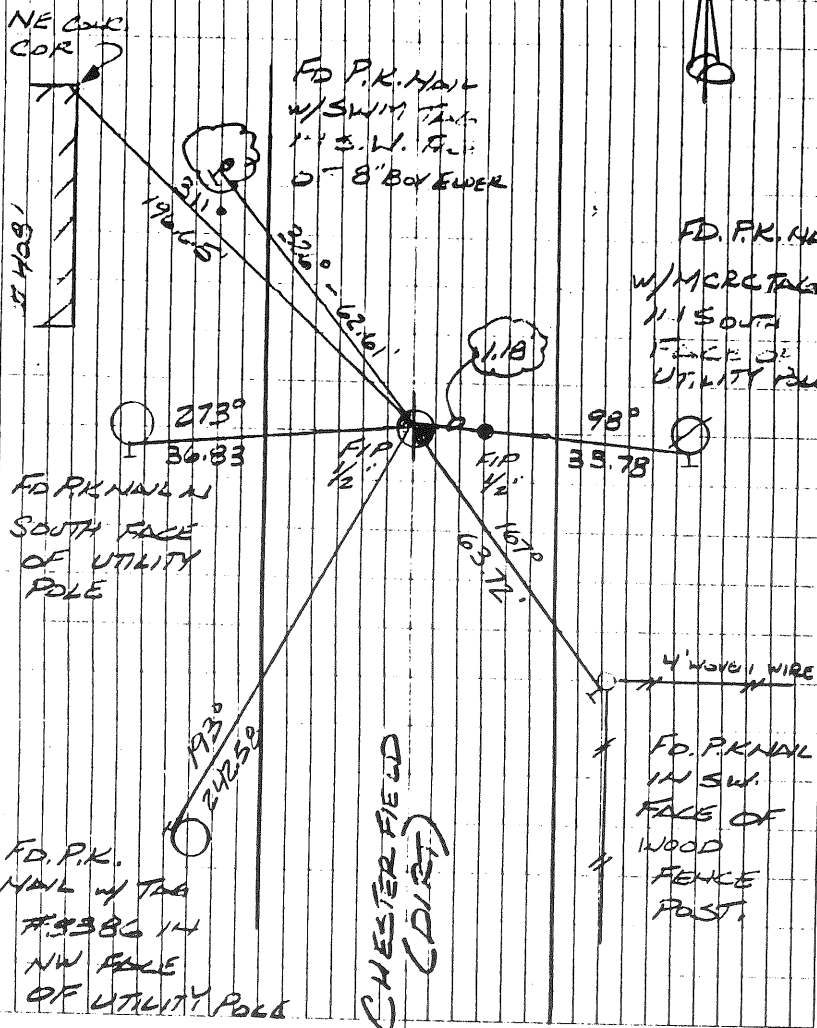 NE CONC.
COR
# 4031
FD P.K. NAIL
W/ SWIM TAG
IN S.W. FACE
OF 8" BOX ELDER
311
196.65'
326° - 62.61'
FD. P.K. NAIL
W/ MCRC TAG
IN SOUTH
FACE OF
UTILITY POLE
1.18'
273°
36.83
98°
33.78
FIP
1/2"
FIP
1/2"
FD P.K NAIL IN
SOUTH FACE
OF UTILITY
POLE
167°
63.72'
4' WOVEN WIRE
193°
242.52
FD. P.K NAIL
IN SW.
FACE OF
WOOD
FENCE
POST.
FD. P.K.
NAIL w/ TAG
#9386 IN
NW FACE
OF UTILITY POLE
CHESTERFIELD
(DIRT)